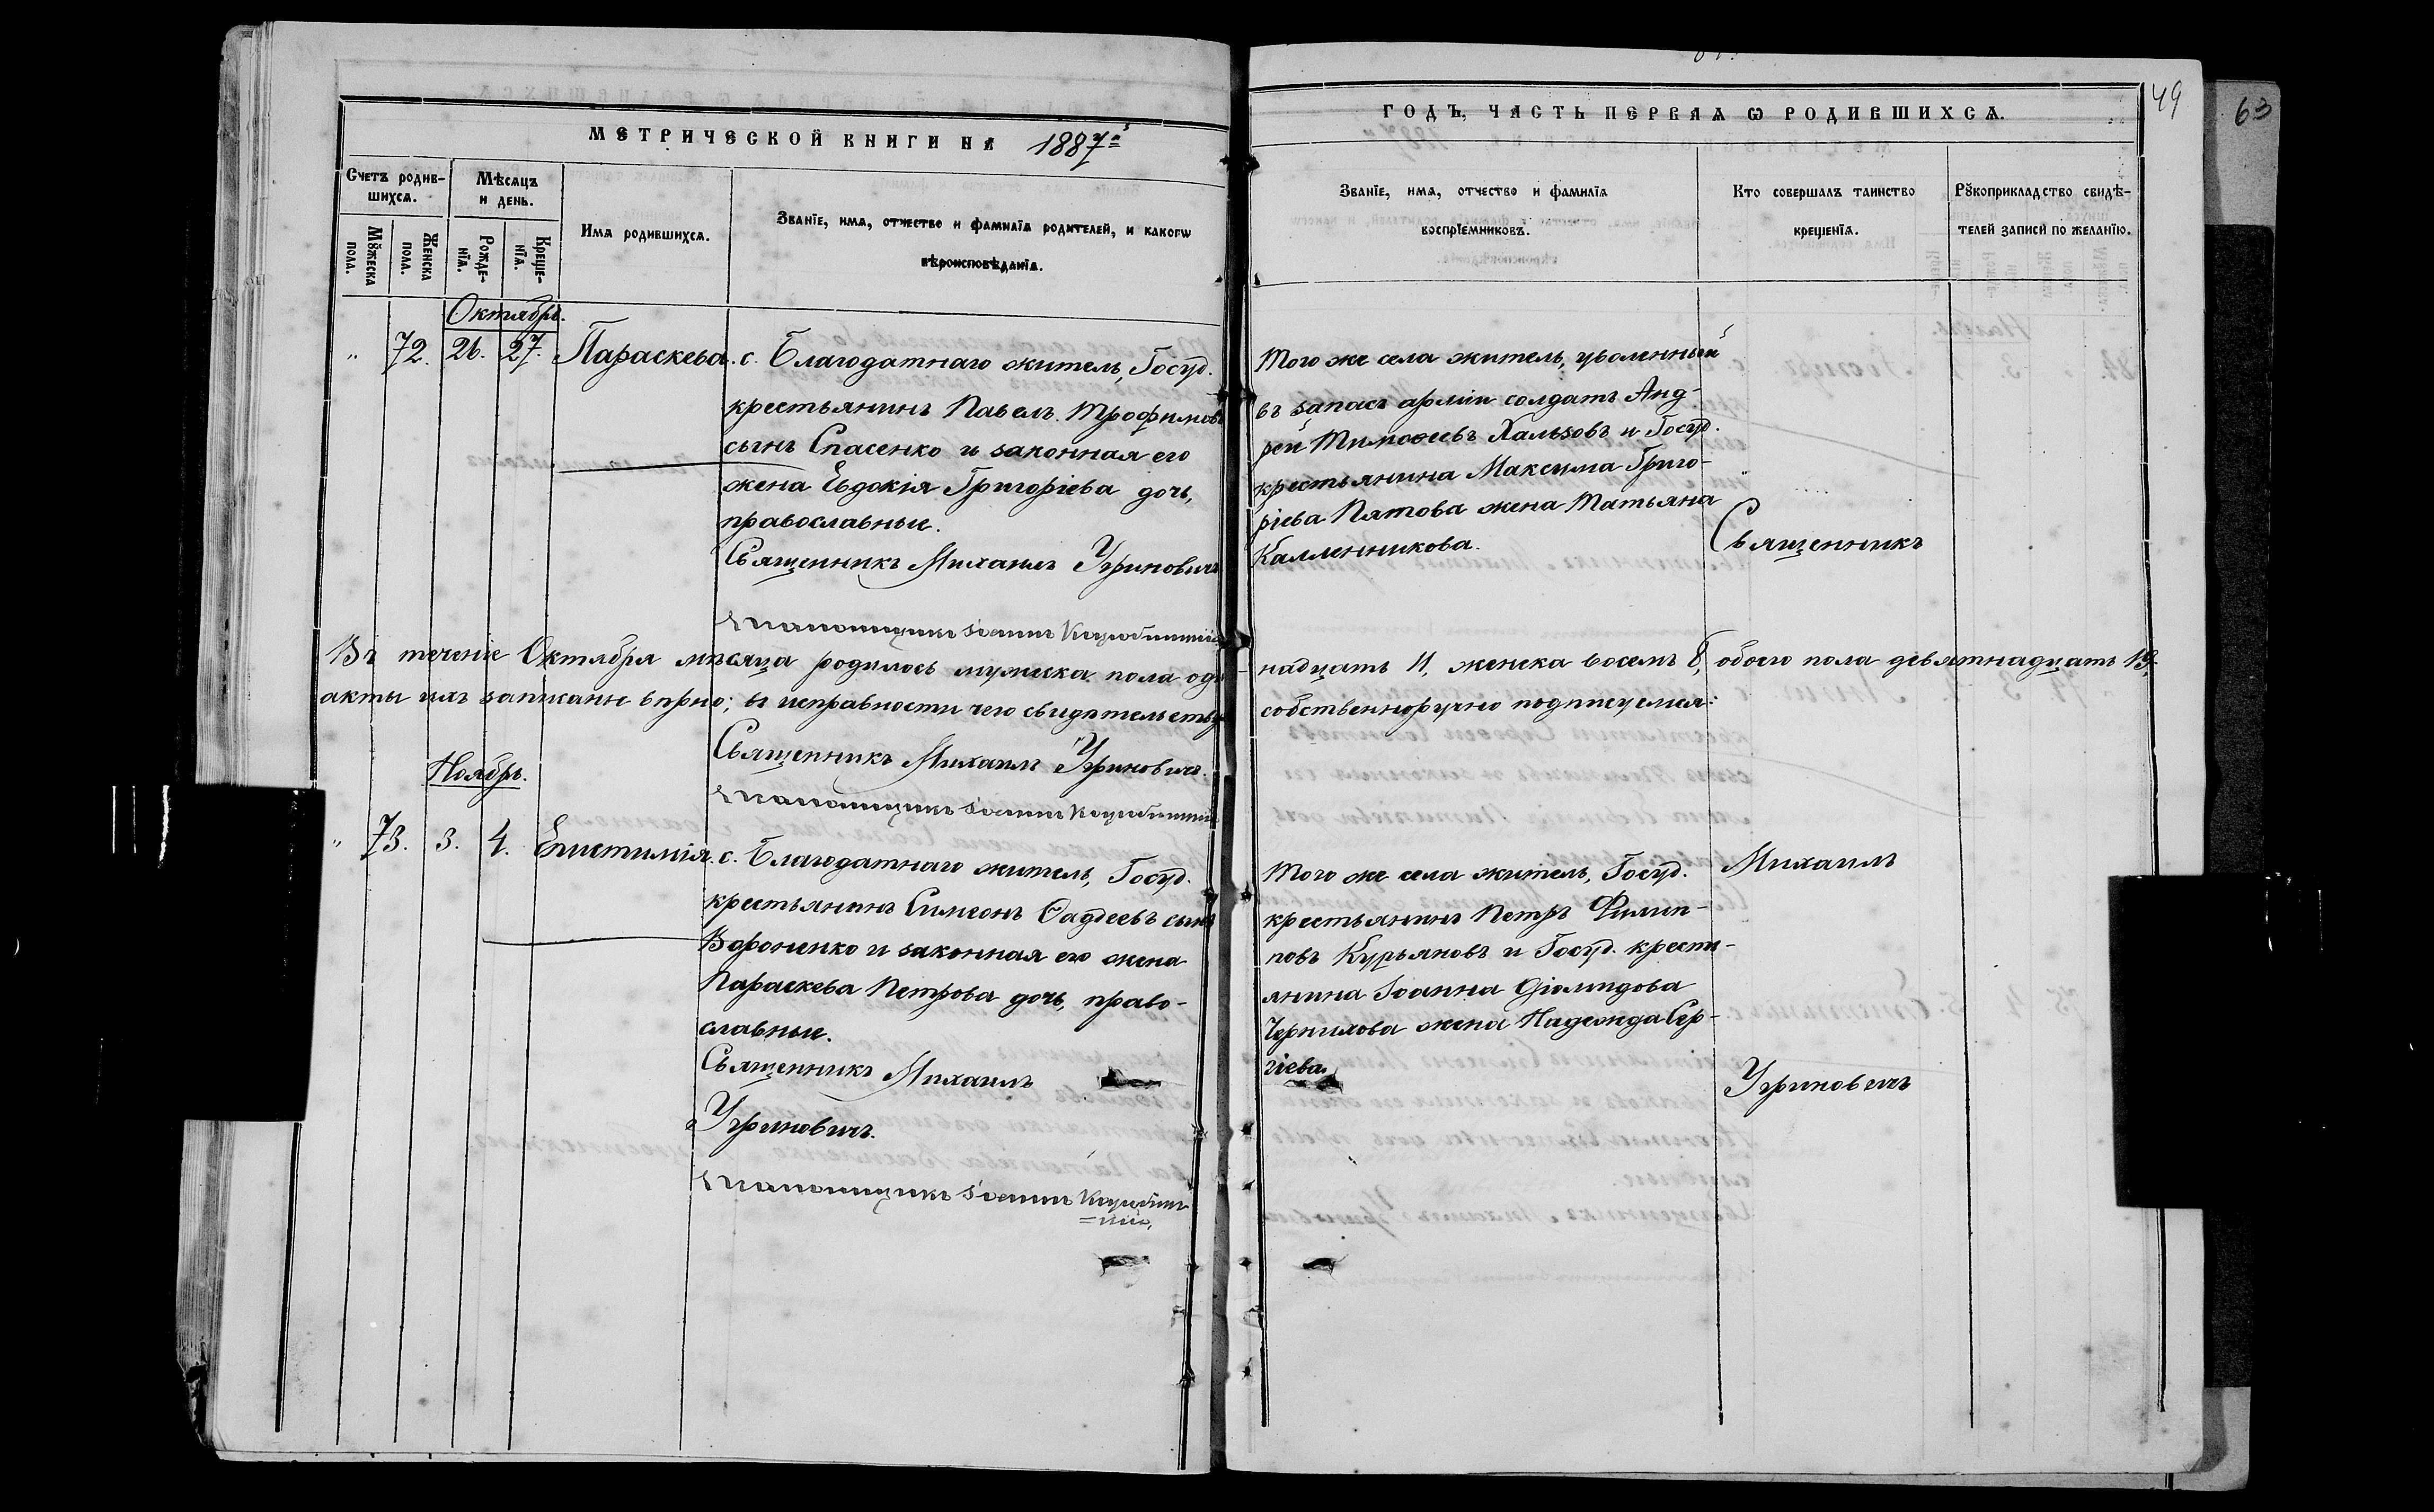 49
63
МЕТРИЧЕСКОЙ КНИГИ НА 1887й
ГОДЪ, ЧАСТЬ ПЕРВАЯ Ѡ РОДИВШИХСѦ.
Счетъ родив-
шихсѧ.
Мꙋжеска
пола.
Женска
пола.
Мѣсѧцъ
и день.
Рожде-
нїѧ.
Креще-
нїѧ.
Имѧ родившихсѧ.
Званїе, имѧ, отчество и фамилїѧ родителей, и какогѡ
вѣроисповѣданїѧ.
Званїе, имѧ, отчество и фамилїѧ
воспрїемниковъ.
Кто совершалъ таинство
крещенїѧ.
Рꙋкоприкладство свидѣ-
телей записи по желанїю.
Октябрь.
" 72. 26. 27. Параскева.
с. Благодатнаго житель, Госуд.
крестьянинъ Павелъ Трофимовъ
сынъ Спасенко и законная его
жена Евдокія Григоріева дочь,
православные.
Священникъ Михаилъ Угриновичъ
Іоаннъ
Того же села житель, уволенный
въ запасъ арміи солдатъ Анд-
рей Тимоѳеевъ Хальзовъ и Госуд.
крестьянина Максима Григо-
ріева Пятова жена Татьяна
Калленникова.
Священникъ
Въ теченіе Октября мѣсяца родилось мужеска пола оди-
надцать 11, женска восемь 8, обоего пола девятнадцать 19.
акты ихъ записаны вѣрно; въ исправности чего свидѣтельству
собственноручно подписуемся:
Священникъ Михаилъ Угриновичъ.
Іоаннъ
Ноябрь.
" 73. 3. 4. Епистимія.
с. Благодатнаго житель, Госуд.
крестьянинъ Симеонъ Ѳаддеевъ сынъ
Вороненко и законная его жена
Параскева Петрова дочь, право-
славные.
Священникъ Михаилъ
Угриновичъ.
Іоаннъ
Того же села житель, Госуд.
крестьянинъ Петръ Филип-
повъ Курьяновъ и Госуд. кресть-
янина Іоанна
жена Надежда Сер-
гіева.
Михаилъ
Угриновичъ